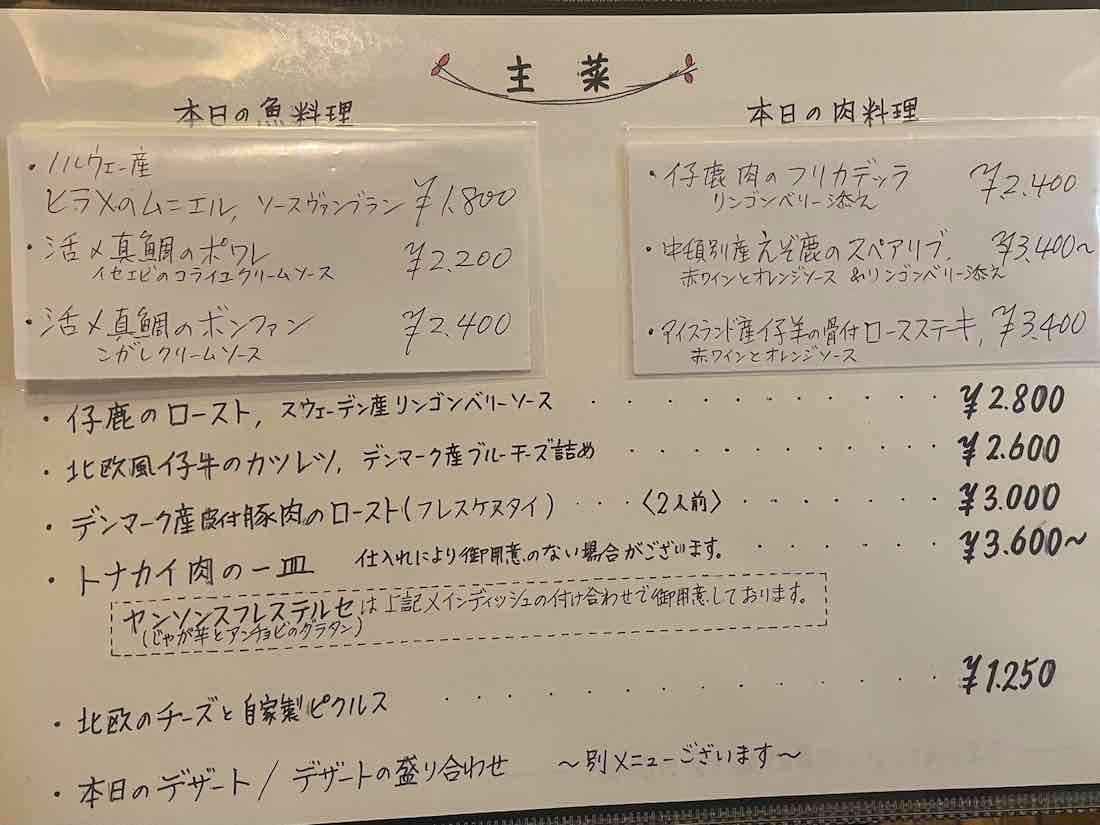 主菜
本日の魚料理
・ノルウェー産
ヒラメのムニエル, ソースヴァンブラン ¥1,800
・活〆真鯛のポワレ ¥2.200
イセエビのコライユクリームソース
・活〆真鯛のボンファン ¥2.400
こがしクリームソース
本日の肉料理
・仔鹿肉のフリカデッラ ¥2.400
リンゴンベリー添え
・中頓別産えぞ鹿のスペアリブ, ¥3.400～
赤ワインとオレンジソース &リンゴンベリー添え
・アイスランド産仔羊の骨付ロースステーキ, ¥3.400
赤ワインとオレンジソース
・仔鹿のロースト, スウェーデン産リンゴンベリーソース ¥2.800
・北欧風仔牛のカツレツ, デンマーク産ブルーチーズ詰め ¥2.600
・デンマーク産皮付豚肉のロースト(フレスケスタイ) 〈2人前〉 ¥3.000
・トナカイ肉の一皿 仕入れにより御用意のない場合がございます。 ¥3.600～
ヤンソンスフレステルセは上記メインディッシュの付け合わせで御用意しております。
(じゃが芋とアンチョビのグラタン)
・北欧のチーズと自家製ピクルス ¥1.250
・本日のデザート / デザートの盛り合わせ ～別メニューございます～